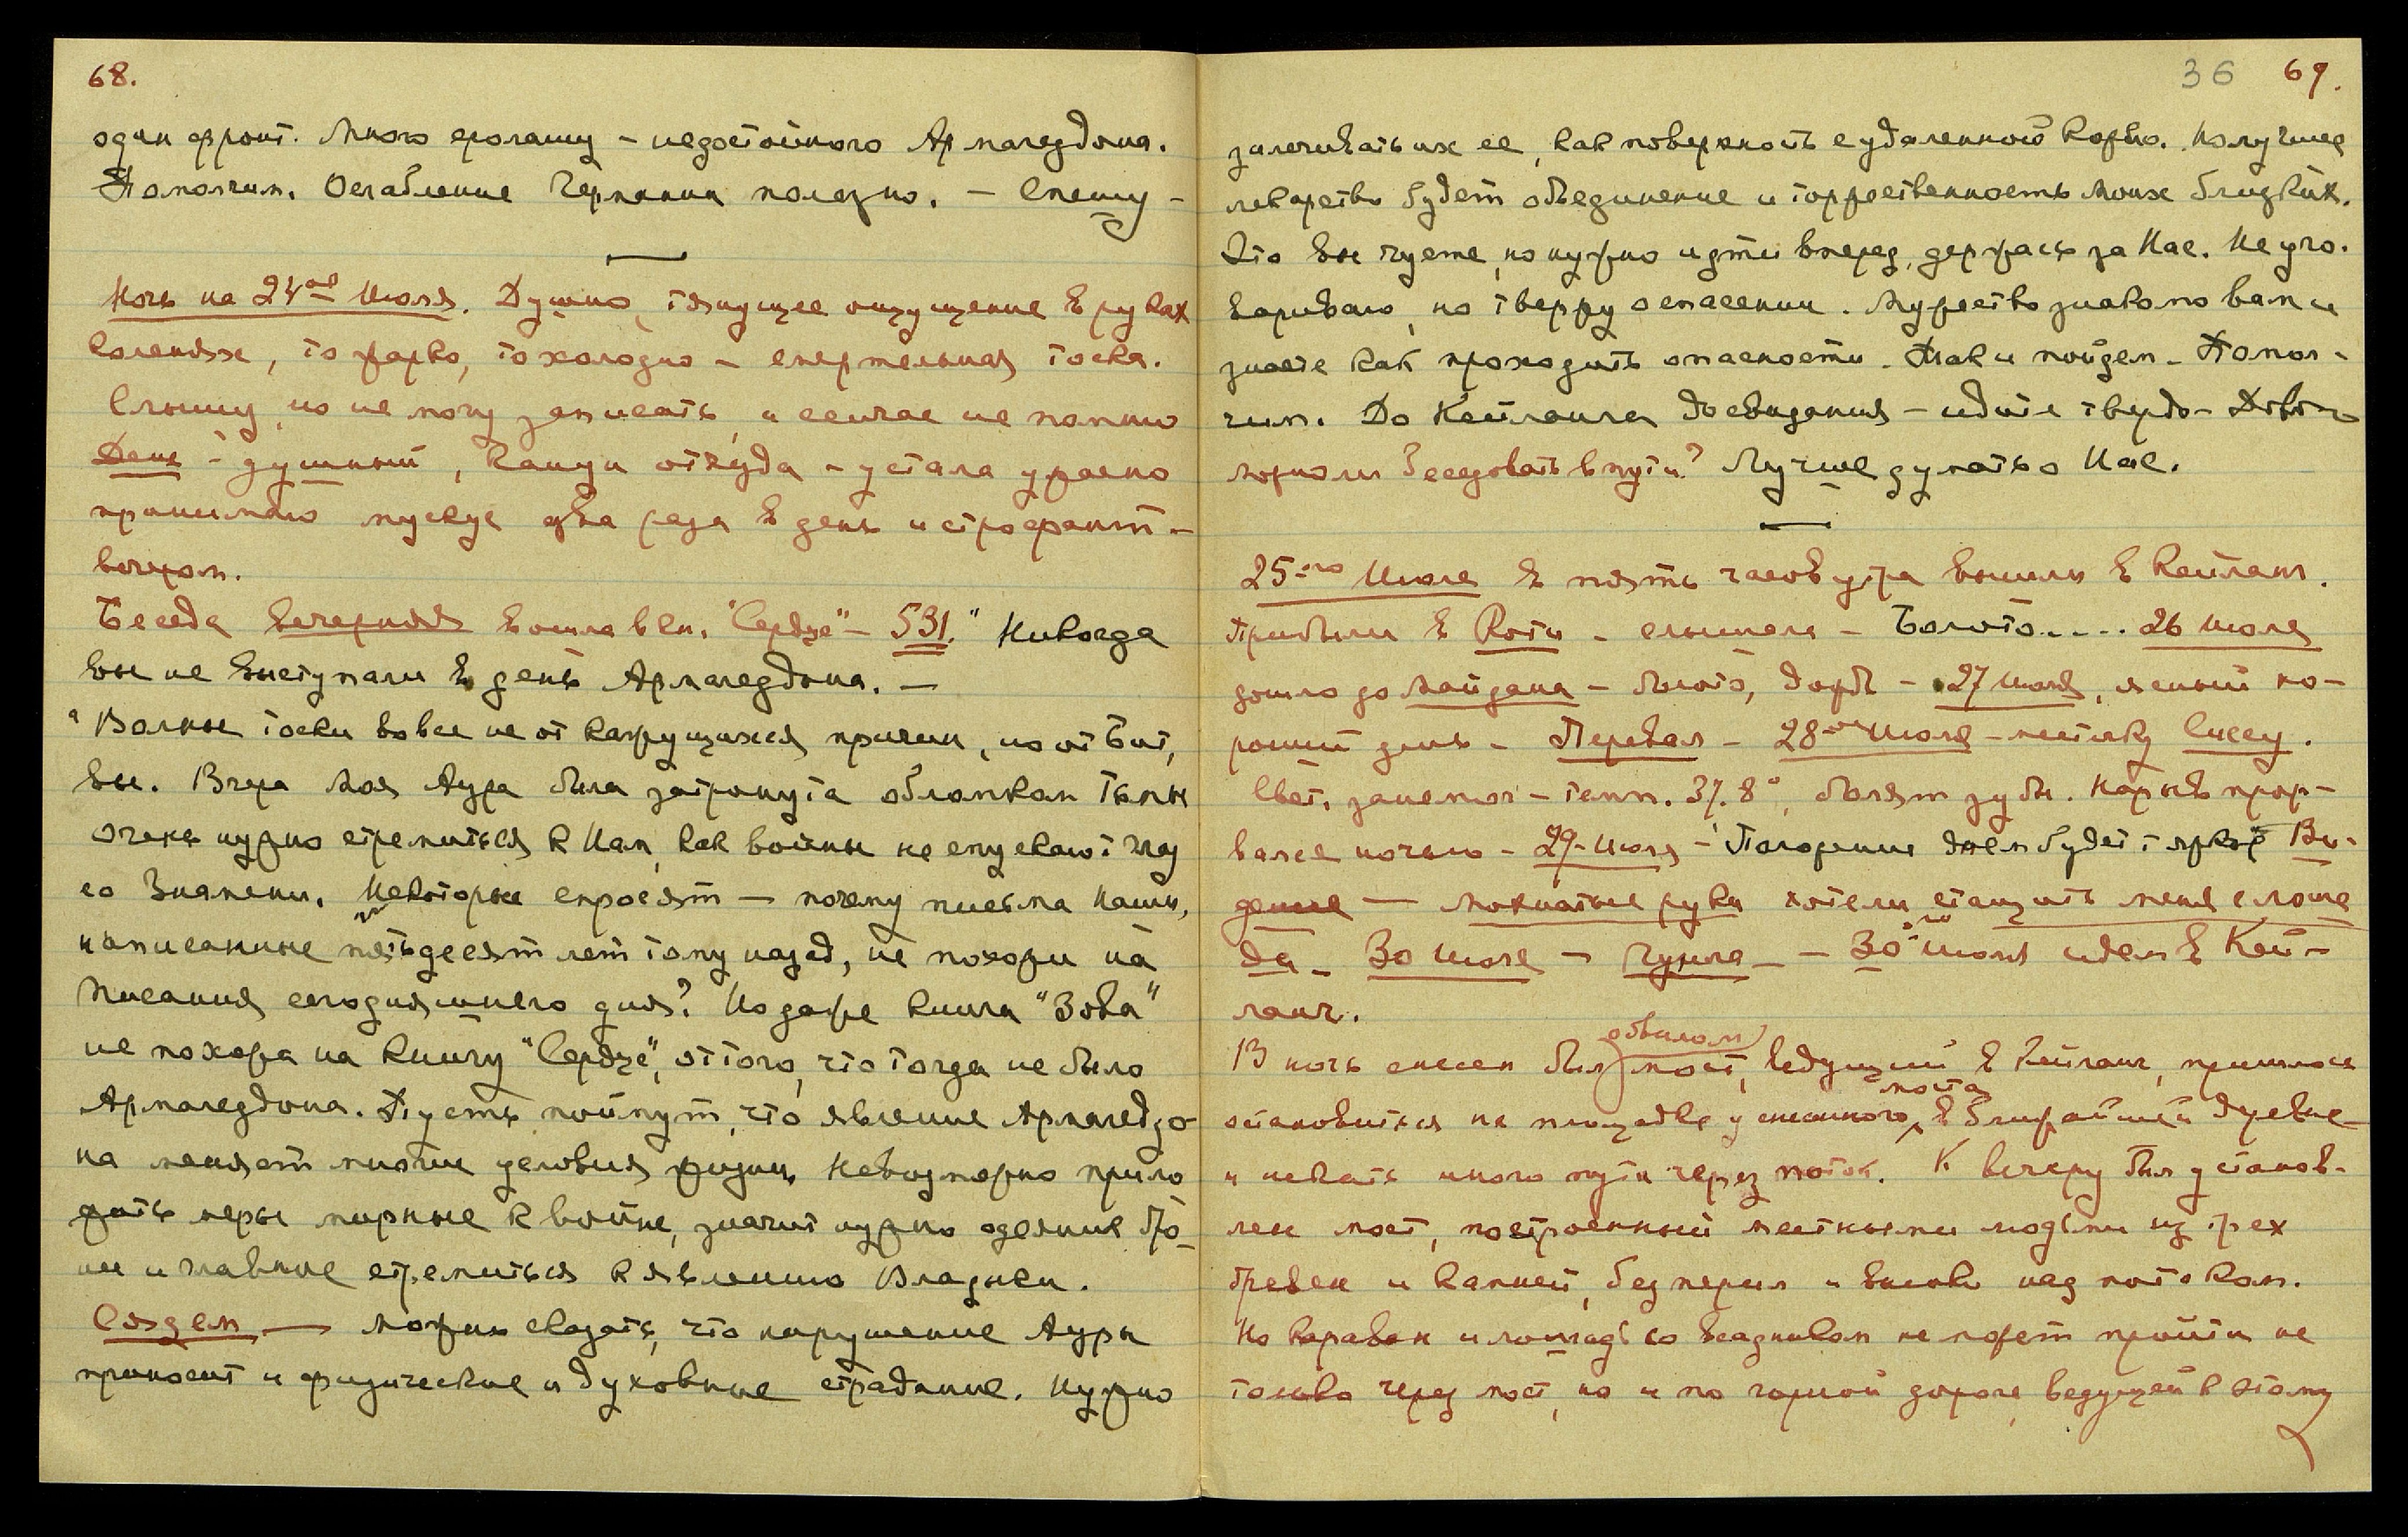 68.
один фронт. Много ералашу – недостойного Армагеддона.
Помолчим. Ослабление Германии полезно. – Спешу –
Ночь на 24ое Июля. Душно, тянущее ощущение в руках
коленях, то жарко, то холодно – смертельная тоска.
Слышу, но не могу записать, и сейчас не помню
День – душный, – устала ужасно
принимаю мускус два раза в день и строфант –
вечером.
Беседа вечерняя вошла в кн. "Сердце" – 531. " Никогда
вы не выступали в день Армагеддона. –
"Волны тоски вовсе не от кажущихся причин, но от Бит,
вы. Вчера Моя Аура была затронута обломком Тьмы
очень нужно стремиться к Нам, как воины не спускают глаз
со Знамени. Некоторые спросят – почему письма Наши,
написанные пятьдесят лет тому назад, не похожи на
Писания сегодняшнего дня? Но даже книга "Зова"
не похожа на книгу "Сердце", оттого, что тогда не было
Армагеддона. Пусть поймут, что явление Армагеддо
на меняет многие условия жизни. Невозможно прило
жить меры мирные к войне, значит нужно одеяние бро_
ни и главное стремиться к явлению Владыки.
Сядем, — можно сказать, что нарушение Ауры
приносит и физические и духовные страдание. Нужно
36 69.
залечивать их ее, как поверхность с удаленной кожею. Налучшее
лекарство будет объединение и торжественность Моих близких.
Это вы чуете, но нужно идти вперед, держась за Нас. Не уго.
вариваю, но твержу о спасении. Мужество знакомо вам и
знаете как проходить опасности. Так и пойдем – Помол-
чим. До Кейланга до свидания – идите твердо – Довол
можно ли беседовать в пути? Лучше думать о Нас.
25-го Июля в пять часов утра вышли в Кейланг.
Прибыли в Коти – слышала – Болото..... 26 Июля
дошло до Майдана – болото, дождь – 27 Июля, ясный хо-
роший день – Перевал – 28ое Июля – местечку Сиссу.
Свет. занемог – темп. 37.8°, болят зубы. Нарыв прор-
вался ночью – 29-Июля – Погорении днем будет ярко" Ви-
дение — мохнатые руки хотели стащить меня с лоша
ди – 30 Июля – Гундла – – 30го Июля идем в Кей-
ланг.
обвалом
В ночь снесен был мост, ведущий в Кейланг, пришлось
моста
остановиться на площадке у снесенного, в ближайшей деревне
и искать иного пути через поток. К вечеру был установ-
лен мост, построенный местными людьми из трех
бревен и камней, без перил и высоко над потоком.
Но караван и лошадь со всадником не может пройти не
только через мост, но и по горной дороге, ведущей к этому